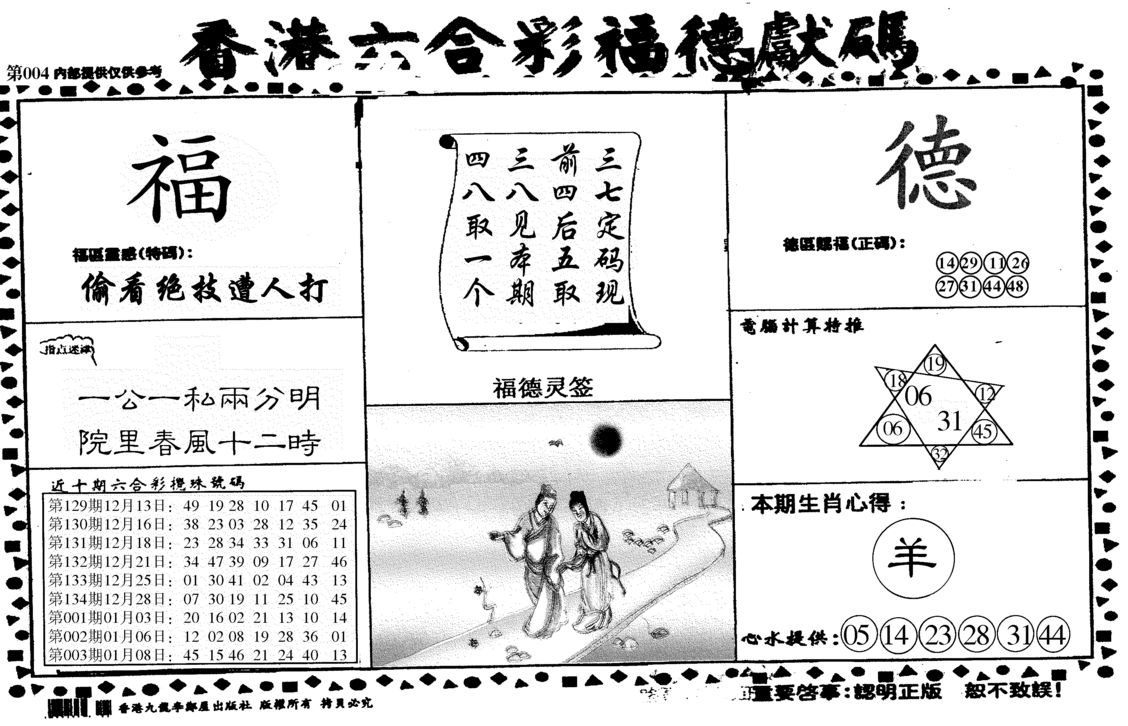 香港六合彩福德獻碼
第004 内部提供仅供参考
福
福區靈感(特碼)：
偷看绝技遭人打
指点迷津
一公一私兩分明
院里春風十二時
近十期六合彩攪珠號碼
第129期12月13日： 49 19 28 10 17 45 01
第130期12月16日： 38 23 03 28 12 35 24
第131期12月18日： 23 28 34 33 31 06 11
第132期12月21日： 34 47 39 09 17 27 46
第133期12月25日： 01 30 41 02 04 43 13
第134期12月28日： 07 30 19 11 25 10 45
第001期01月03日： 20 16 02 21 13 10 14
第002期01月06日： 12 02 08 19 28 36 01
第003期01月08日： 45 15 46 21 24 40 13
三七定码现
前四后五取
三八见本期
四八取一个
福德灵签
德
德區賜福(正碼)：
14 29 11 26
27 31 44 48
電腦計算特推
19
18 12
06
31
06 45
32
本期生肖心得：
羊
心水提供: 05 14 23 28 31 44
重要啓事:認明正版 恕不致誤!
香港九龍李鄭屋出版社 版權所有 拷貝必究